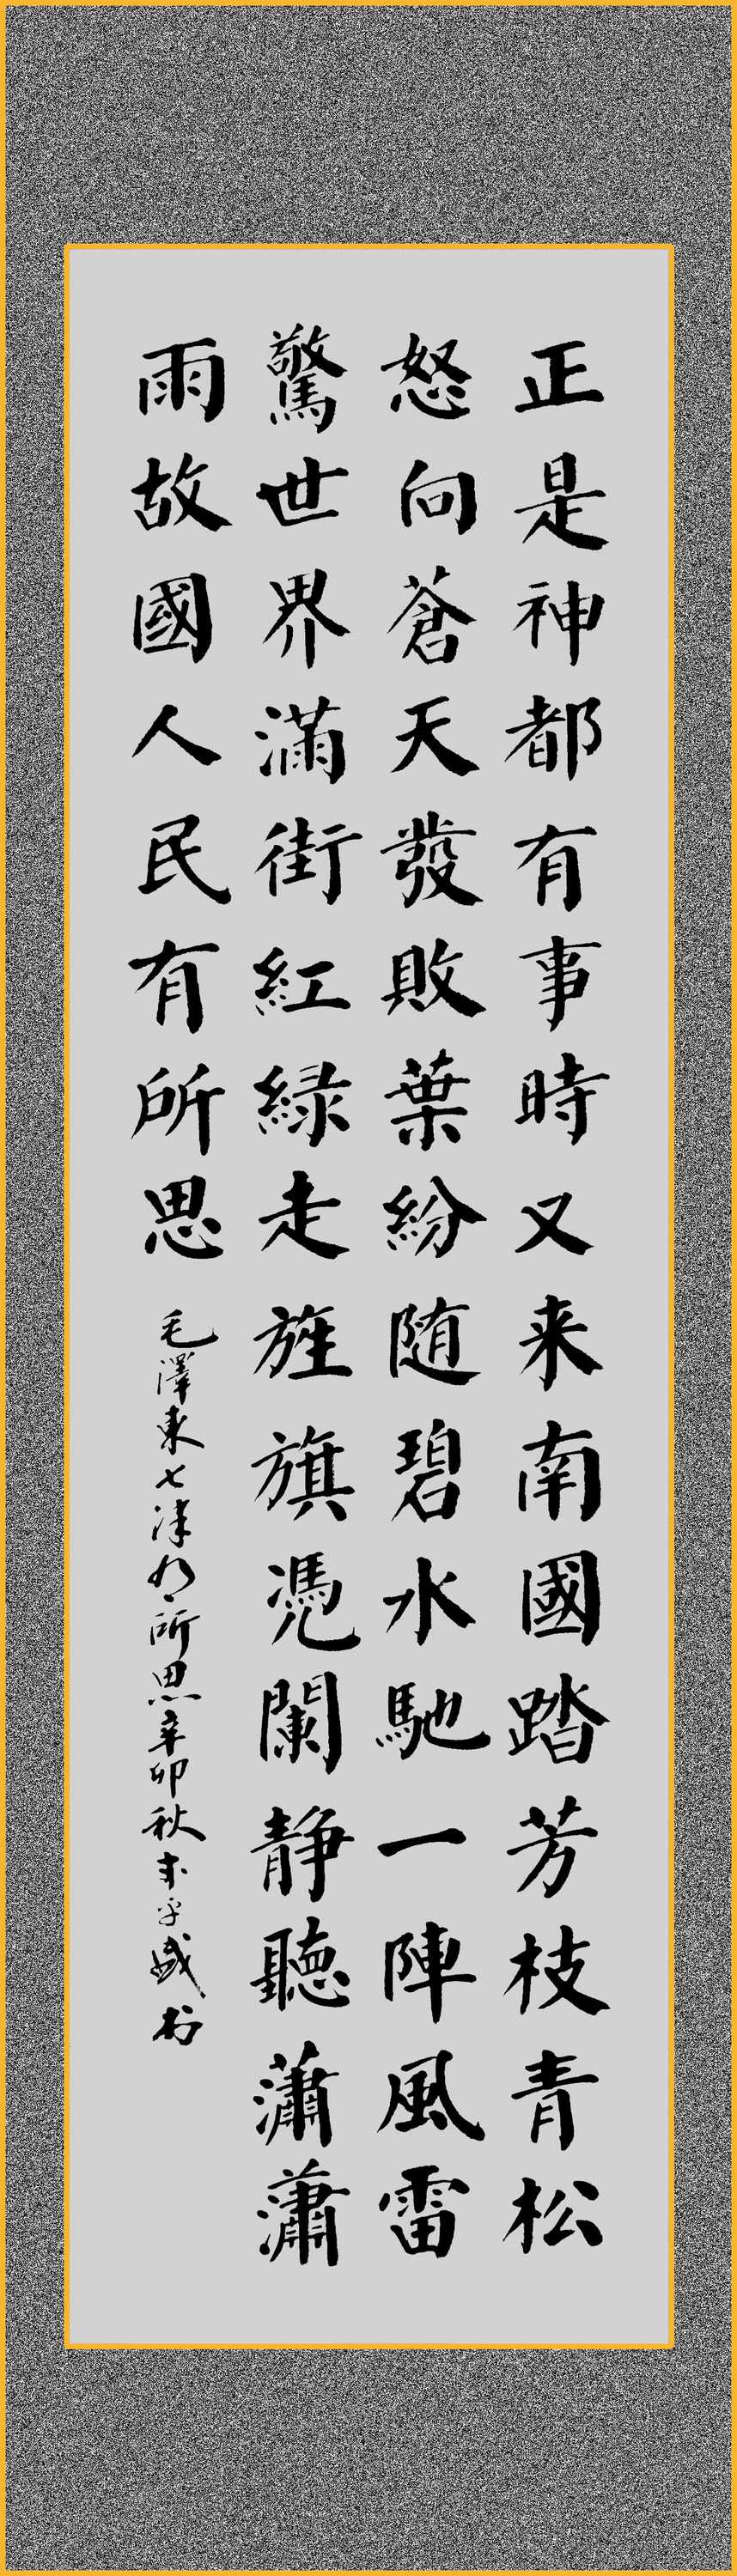 正是神都有事時又来南國踏芳枝青松
怒向蒼天發敗葉紛随碧水馳一陣風雷
驚世界滿街紅緑走旌旗凭闌静聽瀟瀟
雨故國人民有所思
毛澤東七律有所思辛卯秋